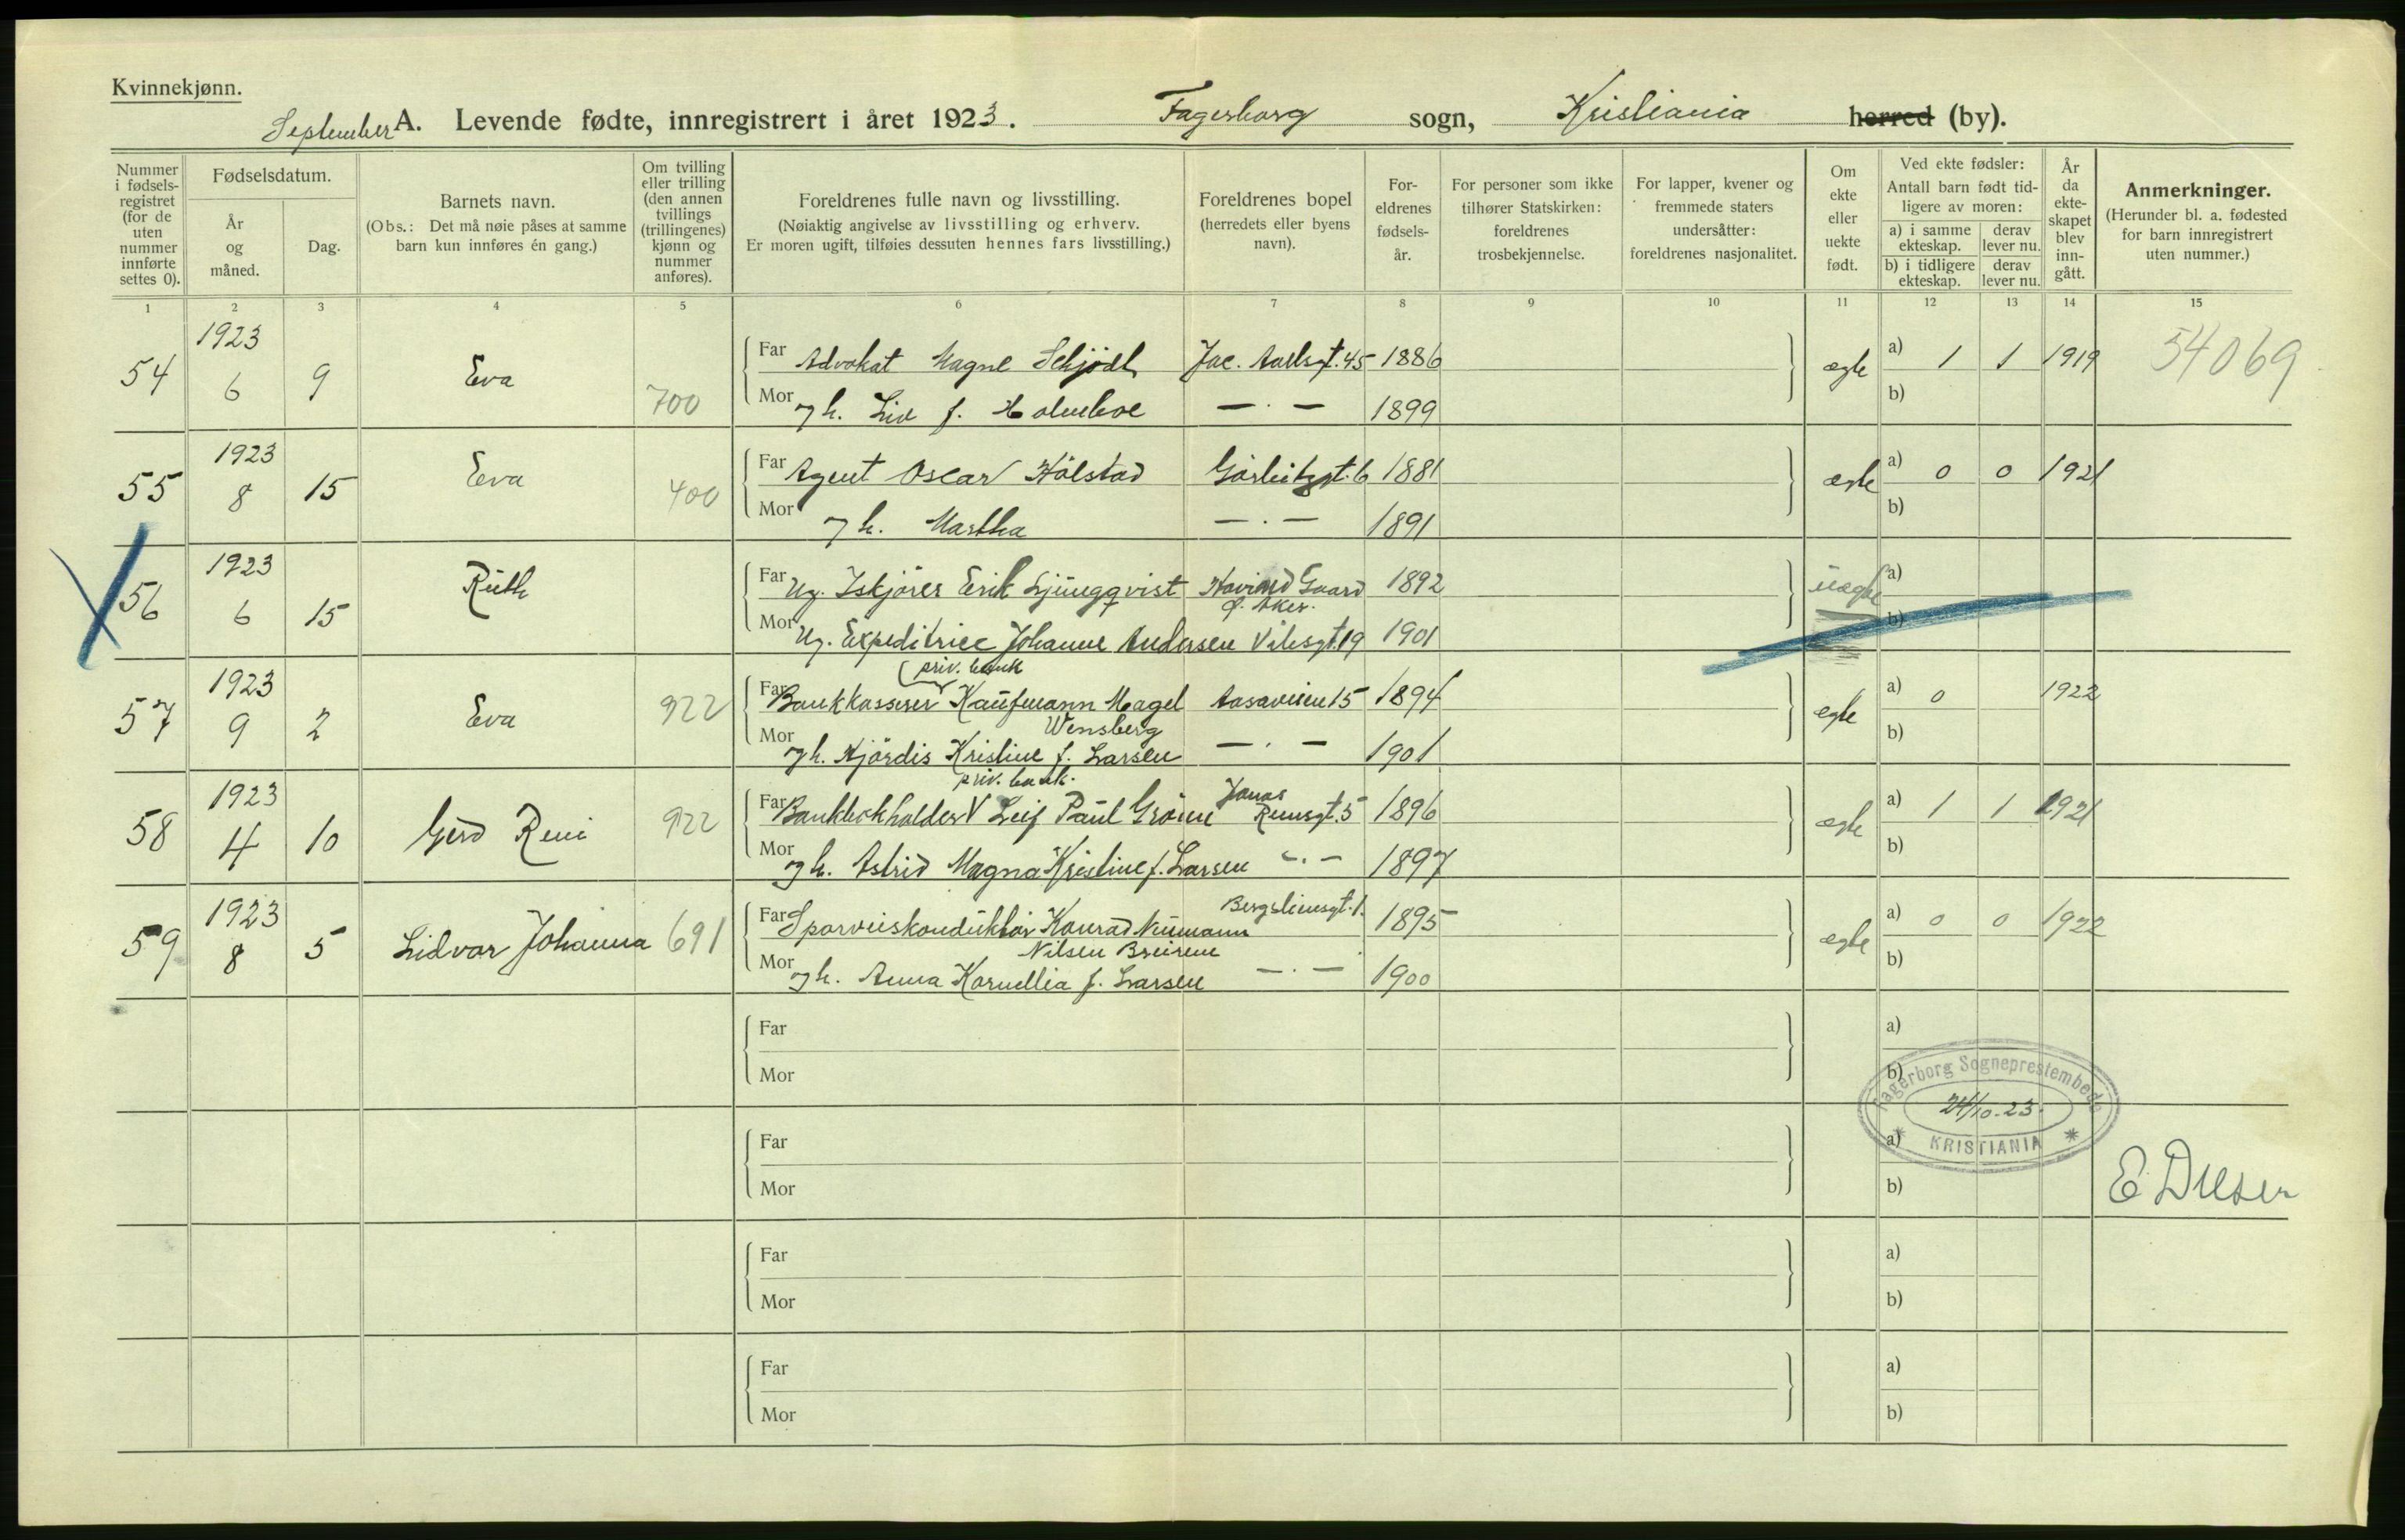 Kvinnekjønn.
September A. Levende fødte, innregistrert i året 1923. Fagerborg sogn, Kristiania herred (by).
Nummer i fødselsregistret (for de uten nummer innførte settes 0).
Fødselsdatum.
År og måned.
Dag.
Barnets navn.
(Obs.: Det må nøie påses at samme barn kun innføres én gang.)
Om tvilling eller trilling (den annen tvillings (trillingenes) kjønn og nummer anføres).
Foreldrenes fulle navn og livsstilling.
(Nøiaktig angivelse av livsstilling og erhverv.
Er moren ugift, tilføies dessuten hennes fars livsstilling.)
Foreldrenes bopel
(herredets eller byens navn).
Foreldrenes fødselsår.
For personer som ikke tilhører Statskirken: foreldrenes trosbekjennelse.
For lapper, kvener og fremmede staters undersåtter: foreldrenes nasjonalitet.
Om ekte eller uekte født.
Ved ekte fødsler:
Antall barn født tidligere av moren:
a) i samme ekteskap.
derav lever nu.
b) i tidligere ekteskap.
derav lever nu.
År da ekteskapet blev inngått.
Anmerkninger.
(Herunder bl. a. fødested for barn innregistrert uten nummer.)
1 2 3 4 5 6 7 8 9 10 11 12 13 14 15
54 1923 6 9 Eva 700
Far Advokat Magne Schjödt Jac. Aallsgt. 45 1886 egte a) 1 1 1919 54069
Mor og h. Liv f. Holmboe — . — 1899 b)
55 1923 8 15 Eva 400
Far Agent Oscar Hölstad Görbitzgt. 6 1881 egte a) 0 0 1921
Mor og h. Martha — . — 1891 b)
56 1923 6 15 Ruth
Far Ug. Iskjörer Erik Ljungqvist Hovind Gaard Ø. Aker. 1892 uegte a)
Mor Ug. Expeditrice Johanne Andersen Vibesgt. 19 1901 b)
57 1923 9 2 Eva 922
priv. bank
Far Bankkasserer Kaufmann Magel Aasaveien 15 1894 egte a) 0 1922
Wensberg
Mor og h. Hjördis Kristine f. Larsen — . — 1901 b)
58 1923 4 10 Gerd Reni 922
priv. bank.
Far Bankbokholder Leif Paul Gröem Jonas Reinsgt. 5 1896 egte a) 1 1 1921
Mor og h. Astrid Magna Kristine f. Larsen — . — 1897 b)
59 1923 8 5 Lidvor Johanna 691
Far Sporveiskonduktör Konrad Neumann Bergsliensgt. 1. 1895 egte a) 0 0 1922
Nilsen Breirem
Mor og h. Anna Kornellia f. Larsen — . — 1900 b)
Far a)
Mor b)
Fagerborg Sogneprestembede
24/10-23.
* KRISTIANIA *
Far a)
Mor b)
Far a)
Mor b)
Far a)
Mor b)